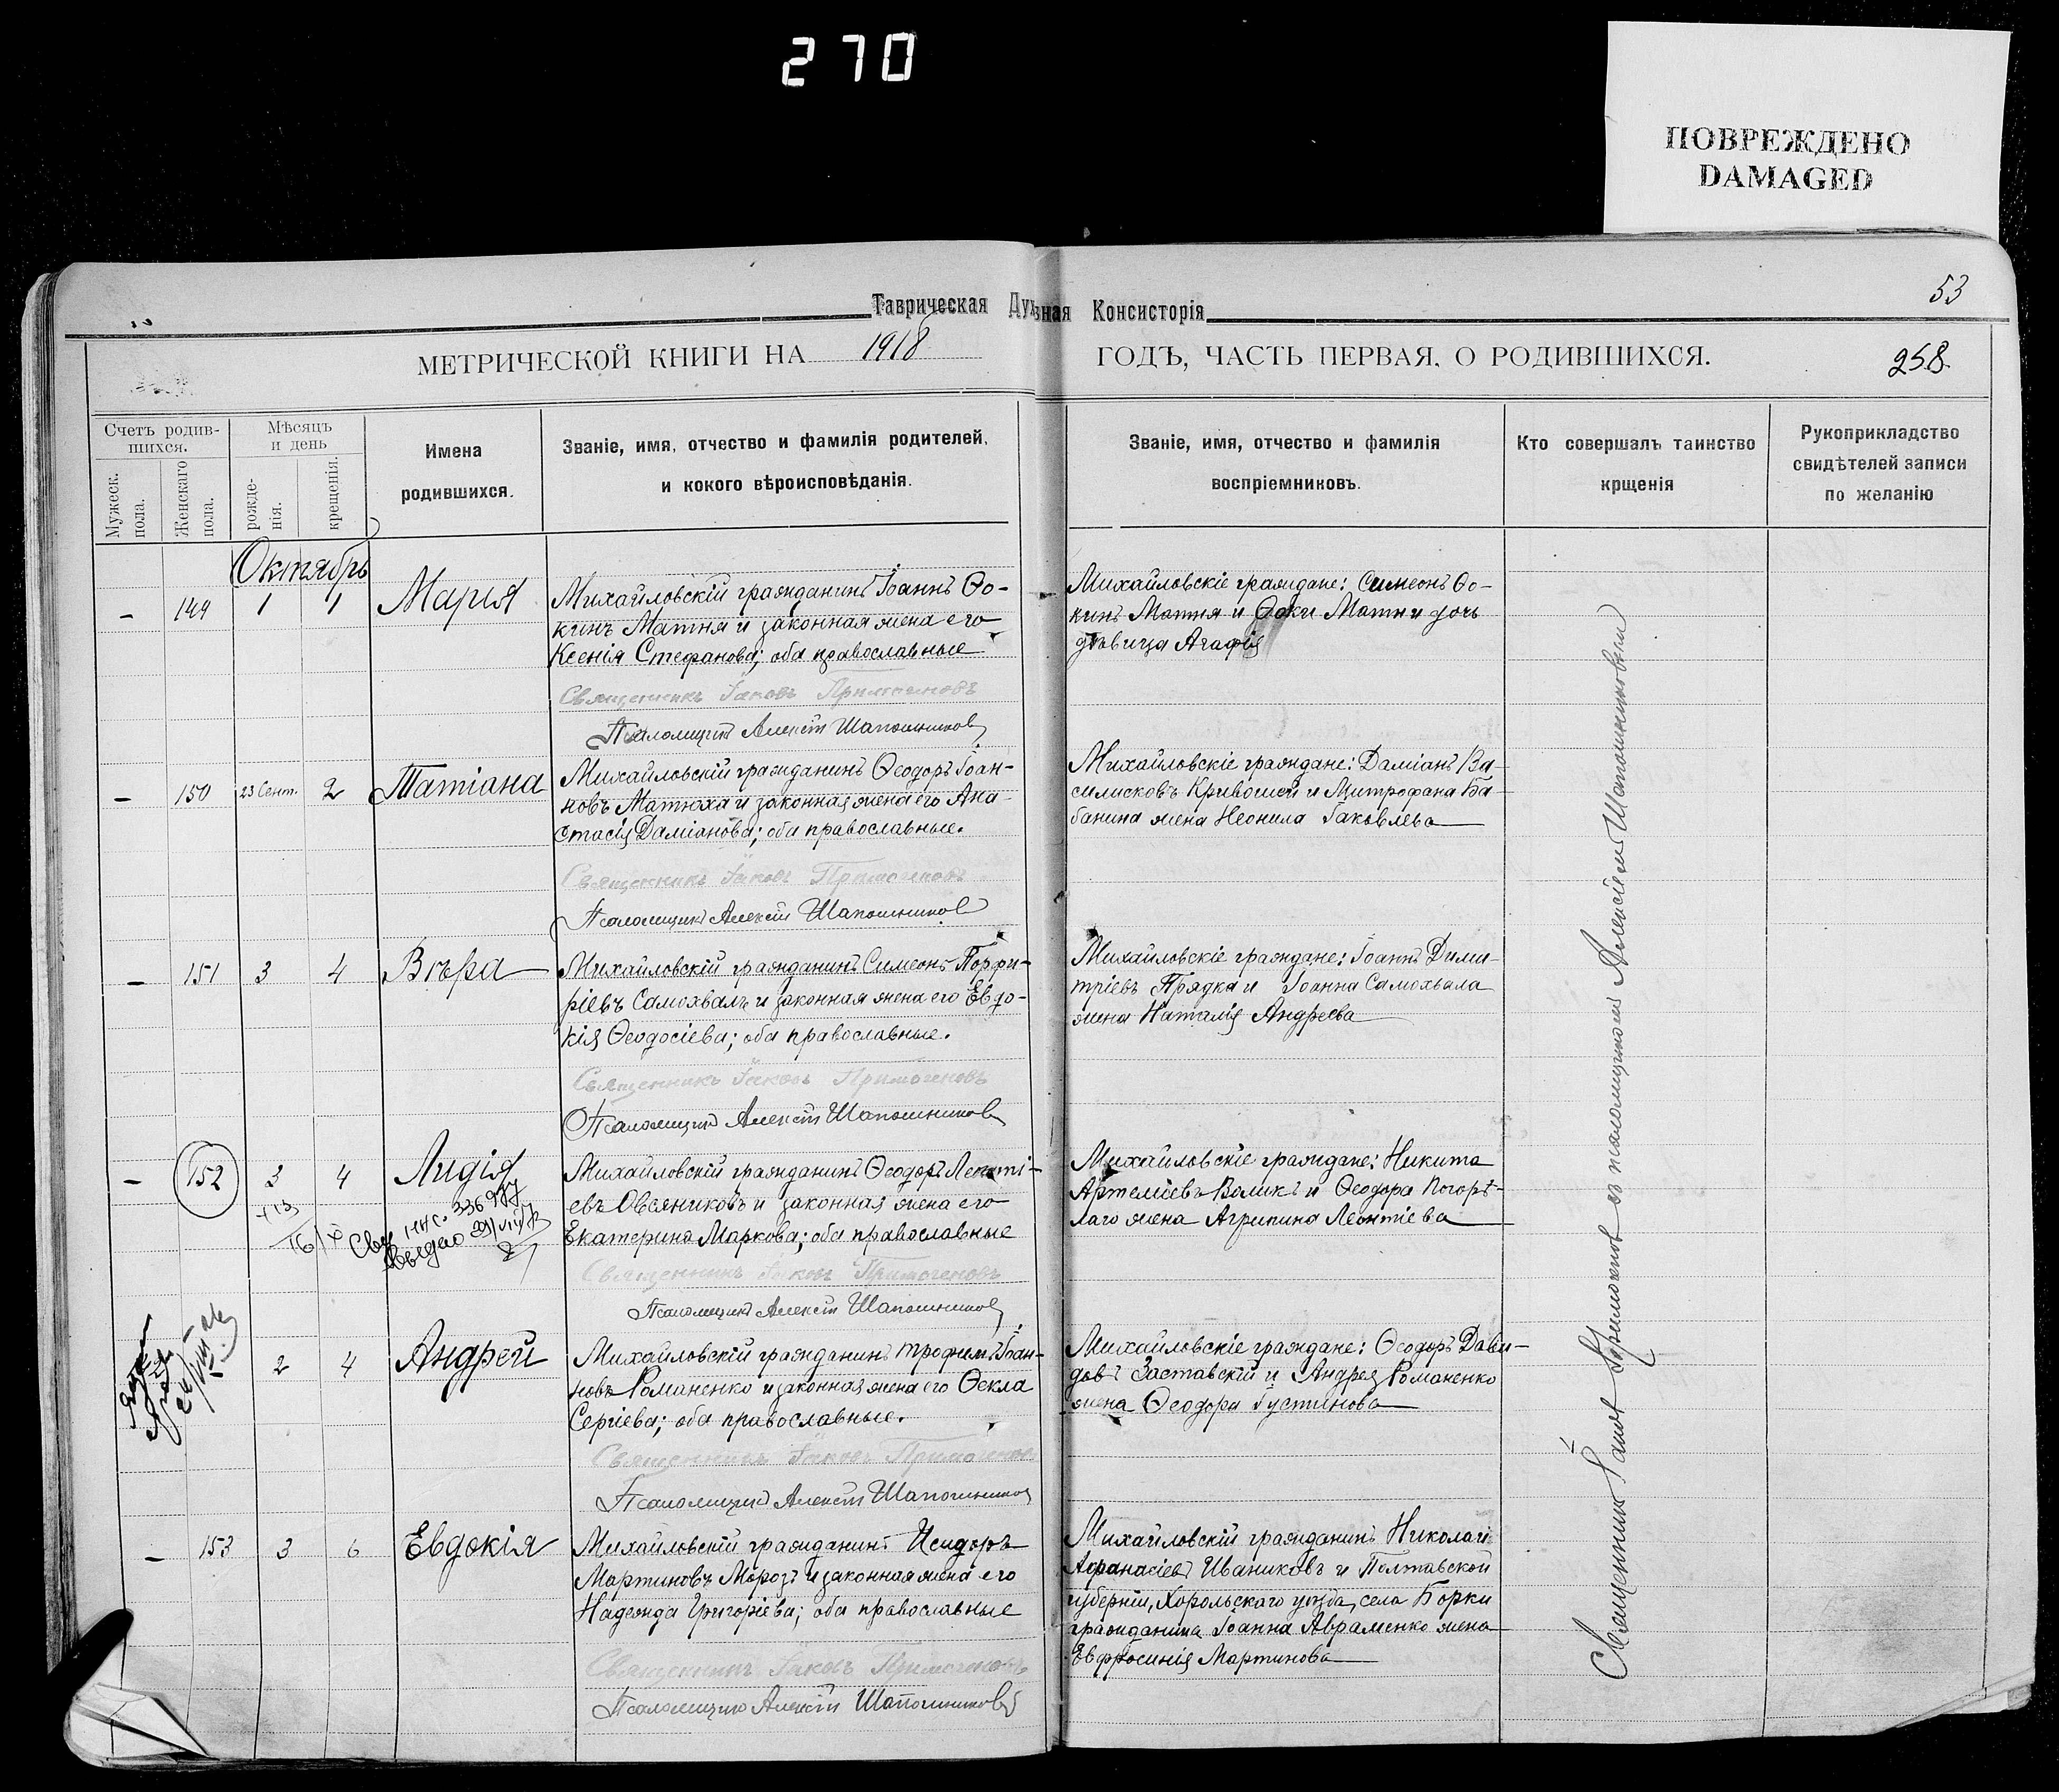 270
ПОВРЕЖДЕНО
DAMAGED
53
Таврическая Духовная Консисторія
МЕТРИЧЕСКОЙ КНИГИ НА 1918
ГОДЪ, ЧАСТЬ ПЕРВАЯ, О РОДИВШИХСЯ.
258.
Счетъ родив-
шихся.
Мужеск.
пола.
Женскаго
пола.
Мѣсяцъ
и день
рожде-
нія.
крещенія.
Имена
родившихся.
Званіе, имя, отчество и фамилія родителей,
и кокого вѣроисповѣданія.
Званіе, имя, отчество и фамилія
воспріемниковъ.
Кто совершалъ таинство
крщенія
Рукоприкладство
свидѣтелей записи
по желанію
Октябрь
– 149 1 1 Марія
Михайловскій гражданинъ Іоаннъ Ѳо-
кинъ Матня и законная жена его
Ксенія Стефанова; оба православные
Священникъ Іаковъ Примогеновъ
Псаломщикъ Алексѣй Шапошников
Михайловскіе граждане: Симеонъ Ѳо-
кинъ Матня и Ѳоки Матни дочь
дѣвица Агафія
– 150 23 Сент. 2 Татіана
Михайловскій гражданинъ Ѳеодоръ Іоан-
новъ Матюха и законная жена его Ана-
стасія Даміанова; оба православные.
Священникъ Іаковъ Примогеновъ
Псаломщикъ Алексѣй Шапошников
Михайловскіе граждане: Даміанъ Ва-
силисковъ Кривошей и Митрофана Ба-
банина жена Неонила Іаковлева
– 151 3 4 Вѣра
Михайловскій гражданинъ Симеонъ Порфи-
ріевъ Самохвалъ и законная жена его Евдо-
кія Ѳеодосіева; оба православные.
Священникъ Іаковъ Примогеновъ
Псаломщикъ Алексѣй Шапошников
Михайловскіе граждане: Іоаннъ Дими-
тріевъ Прядка и Іоанна Самохвала
жена Наталія Андреева
– 152 3 4 Лидія
Михайловскій гражданинъ Ѳеодоръ Леонті-
евъ Овсяниковъ и законная жена его
Екатерина Маркова; оба православные
Священникъ Іаковъ Примогеновъ
Псаломщикъ Алексѣй Шапошников
Михайловскіе граждане: Никита
Артеміевъ Воликъ и Ѳеодора Погорѣ-
лаго жена Агрипина Леонтіева
2 4 Андрей
Михайловскій гражданинъ Трофимъ Іоан-
новъ Романенко и законная жена его Ѳекла
Сергіева; оба православные.
Священникъ Іаковъ Примогенов
Псаломщикъ Алексѣй Шапошников
Михайловскіе граждане: Ѳеодоръ Дави-
довъ Заставскій и Андрея Романенко
жена Ѳеодора Іустинова
– 153 3 6 Евдокія
Михайловскій гражданинъ Исидоръ
Мартиновъ Морозъ и законная жена его
Надежда Григоріева; оба православные
Священникъ Іаковъ Примогеновъ
Псаломщикъ Алексѣй Шапошников
Михайловскій гражданинъ Николай
Афанасіевъ Иваниковъ и Полтавской
губерніи, Хорольскаго уѣзда, села Борки
гражданина Іоанна Авраменко жена
Евфросинія Мартинова
Священник Іаков Примогенов съ псаломщиком Алексіем Шапошниковым